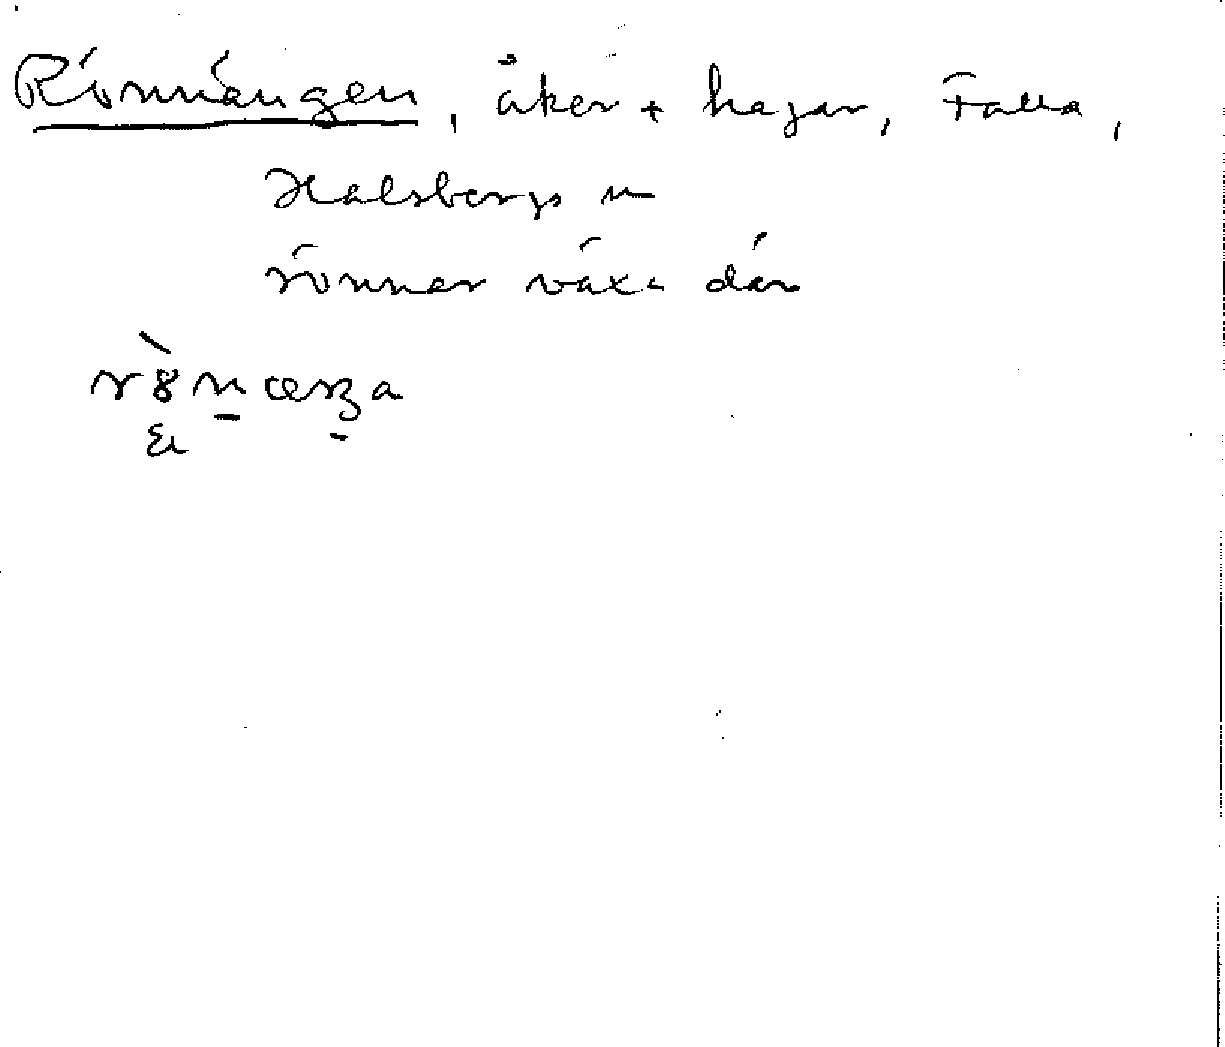 Rönnängen, åker + hagar, Falla,
Hallsbergs sn
rönner växa där